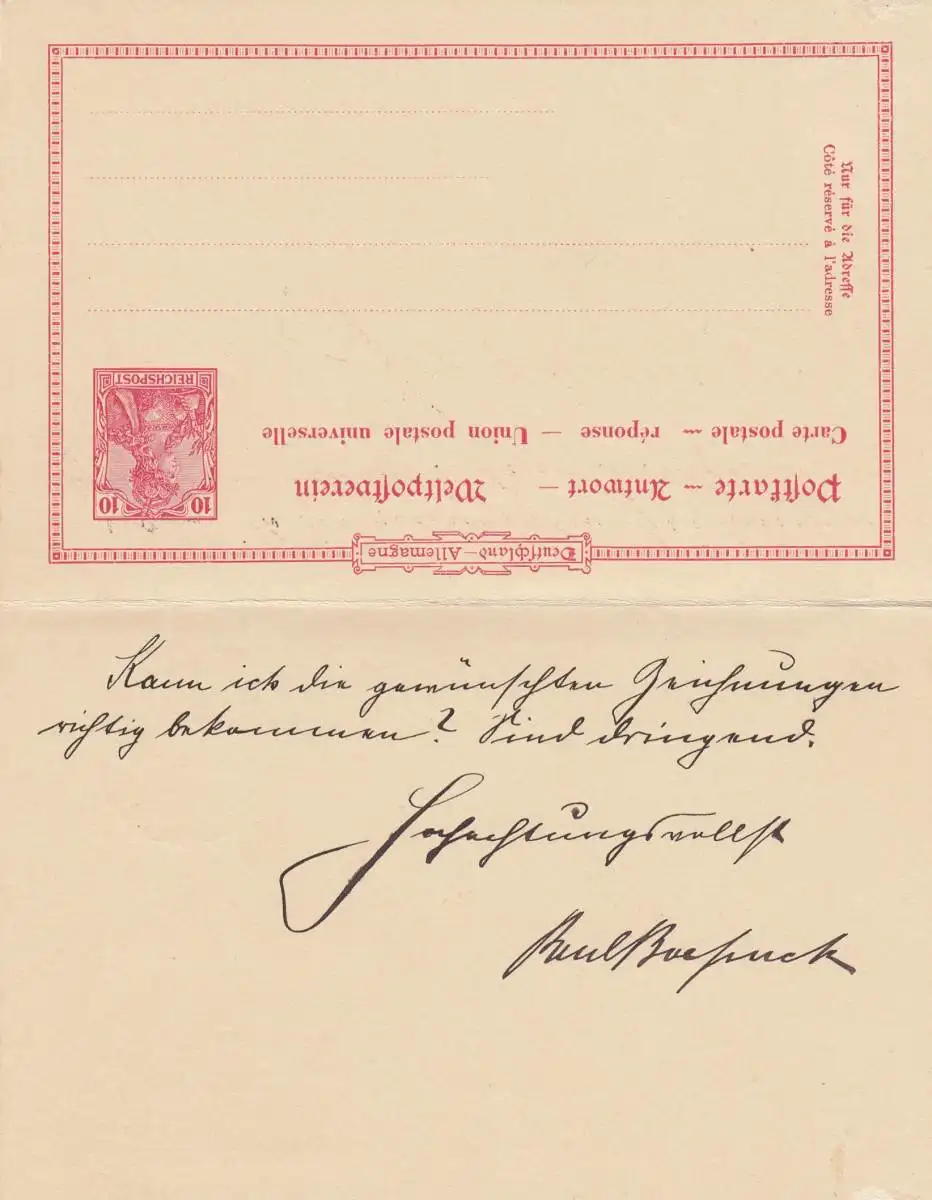 Deutschland — Allemagne
Postkarte — Antwort — Weltpostverein
Carte postale — réponse — Union postale universelle
10 10
REICHSPOST
Nur für die Adresse
Côté réservé à l'adresse
Kann ich die gewünschten Zeichnungen
richtig bekommen? Sind dringend.
Hochachtungsvollst
Paul